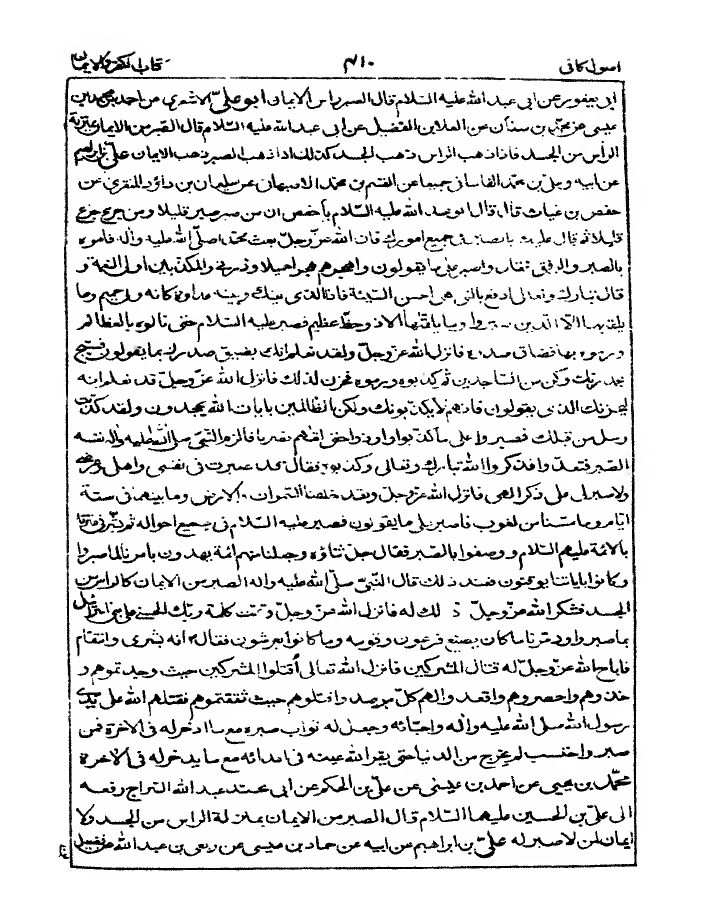 اصول كافى ٤١٠ كتاب الكفر والايمان
ابى يعفور عن ابى عبد الله عليه السّلام قال الصبر راس الايمان ابو علىّ الاشعرى عن احمد بن محمد بن
عيسى عن محمّد بن سنان عن العلا بن الفضيل عن ابى عبد الله عليه السّلام قال الصبر من الايمان بمنزلة
الراس من الجسد فاذا ذهب الراس ذهب الجسد كذلك اذا ذهب الصبر ذهب الايمان علىّ بن ابراهيم
عن ابيه وعلىّ بن محمّد القاسانى جميعا عن القسم بن محمّد الاصبهانى عن سليمن بن داؤد المنقرى عن
حفص بن غياث قال قال ابو عبد الله عليه السّلام يا حفص ان من صبر صبر قليلا ومن جزع جزع
قليلا ثم قال عليك بالصبر فى جميع امورك فان الله عزّ وجلّ بعث محمّد اصلّى الله عليه واله فامره
بالصبر والرفق فقال واصبر على ما يقولون واهجرهم هجرا جميلا وذرنى والمكذبين اولى النعمة و
قال تبارك وتعالى ادفع بالتى هى احسن السيّئة فاذا الذى بينك وبينه عداوة كانه ولى حميم وما
يلقيها الّا الذين صبروا وما يلقّيها الّا ذو حظّ عظيم فصبر عليه السّلام حتى نالوه بالعظائم
ورموه بها فضاق صدره فانزل الله عزّ وجلّ ولقد نعلم انك يضيق صدرك بما يقولون فسبّح
بحمد ربّك وكن من السّاجدين ثم كذبوه ورموه فحزن لذلك فانزل الله عزّ وجلّ قد نعلم انه
ليحزنك الذى يقولون فانهم لا يكذّبونك ولكن الظالمين بايات الله يجحدون ولقد كذّبت
رسل من قبلك فصبروا على ما كذّبوا واوذوا حتى اتاهم نصرنا فالزم النّبى صلّى الله عليه واله نفسه
الصّبر فتعدّوا فذكروا الله تبارك وتعالى وكذبوه فقال قد صبرت فى نفسى واهلى وعرضى
ولا صبر لى على ذكر الهى فانزل الله عزّ وجلّ ولقد خلقنا السّموات والارض وما بينهما فى ستة
ايّام وما مسّنا من لغوب فاصبر على ما يقولون فصبر عليه السّلام فى جميع احواله ثم بشّر فى عترته
بالائمة عليهم السّلام ووصفوا بالصّبر فقال جلّ ثناؤه وجعلنا منهم ائمة يهدون بامرنا لمّا صبروا
وكانوا باياتنا يوقنون فعند ذلك قال النّبىّ صلّى الله عليه واله الصبر من الايمان كالراس من
الجسد فشكر الله عزّ وجلّ ذلك له فانزل الله عزّ وجلّ وتمت كلمة ربك الحسنى على بنى اسرائيل
بما صبروا ودمّرنا ما كان يصنع فرعون وقومه وما كانوا يعرشون فقال انه بشرى وانتقام
فاباح الله عزّ وجلّ له قتال المشركين فانزل الله تعالى اقتلوا المشركين حيث وجدتموهم و
خذوهم واحصروهم واقعدوا لهم كلّ مرصد واقتلوهم حيث ثقفتموهم فقتلهم الله على يدى
رسول الله صلّى الله عليه واله واحبّائه وجعل له ثواب صبره مع ما ادّخر له فى الاخرة فمن
صبر واحتسب لم يخرج من الدنيا حتى يقرّ الله عينه فى اعدائه مع ما يدّخر له فى الاخرة
محمّد بن يحيى عن احمد بن عيسى عن علىّ بن الحكم عن ابى محمّد عبد الله السّراج رفعه
الى علىّ بن الحسين عليهما السّلام قال الصبر من الايمان بمنزلة الراس من الجسد ولا
ايمان لمن لا صبر له علىّ بن ابراهيم عن ابيه عن حماد بن عيسى عن ربعى بن عبد الله عن فضيل